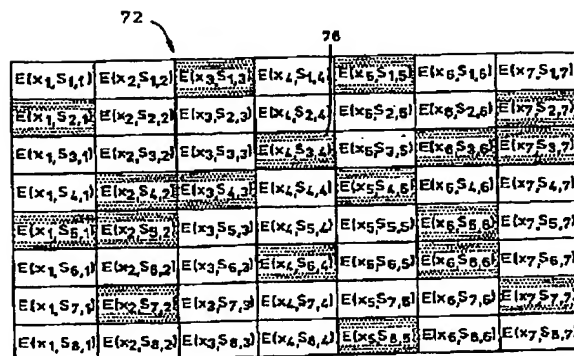 72
76
E(x1,S1,1) E(x2,S1,2) E(x3,S1,3) E(x4,S1,4) E(x5,S1,5) E(x6,S1,6) E(x7,S1,7)
E(x1,S2,1) E(x2,S2,2) E(x3,S2,3) E(x4,S2,4) E(x5,S2,5) E(x6,S2,6) E(x7,S2,7)
E(x1,S3,1) E(x2,S3,2) E(x3,S3,3) E(x4,S3,4) E(x5,S3,5) E(x6,S3,6) E(x7,S3,7)
E(x1,S4,1) E(x2,S4,2) E(x3,S4,3) E(x4,S4,4) E(x5,S4,5) E(x6,S4,6) E(x7,S4,7)
E(x1,S5,1) E(x2,S5,2) E(x3,S5,3) E(x4,S5,4) E(x5,S5,5) E(x6,S5,6) E(x7,S5,7)
E(x1,S6,1) E(x2,S6,2) E(x3,S6,3) E(x4,S6,4) E(x5,S6,5) E(x6,S6,6) E(x7,S6,7)
E(x1,S7,1) E(x2,S7,2) E(x3,S7,3) E(x4,S7,4) E(x5,S7,5) E(x6,S7,6) E(x7,S7,7)
E(x1,S8,1) E(x2,S8,2) E(x3,S8,3) E(x4,S8,4) E(x5,S8,5) E(x6,S8,6) E(x7,S8,7)